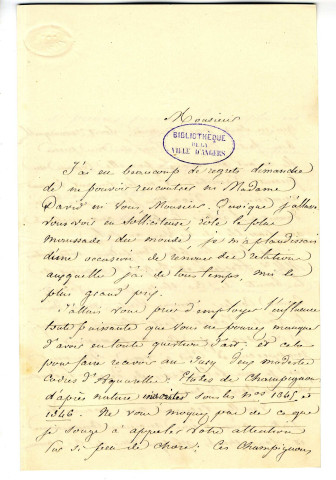 Monsieur
BIBLIOTHÈQUE
DE LA
VILLE D'ANGERS
J'ai eu beaucoup de regrets dimanche
de ne pouvoir rencontrer ni Madame
David ni vous, Monsieur. Quoique j'allasse
vous voir en solliciteuse, rôle le plus
maussade du monde, je m'applaudissais
d'une occasion de renouer des relations
auxquelles j'ai de tous temps, mis le
plus grand prix.
J'allais vous prier d'employer l'influence
toute puissante que vous ne pouvez manquer
d'avoir en toute question d'art: et cela
pour faire recevoir au Jury deux modestes
cadres d'Aquarelle, Etudes de Champignons
d'après nature inscrites sous les nos 1345 et
1346. Ne vous moquez pas de ce que
je songe à appeler votre attention
sur si peu de chose; ces Champignons